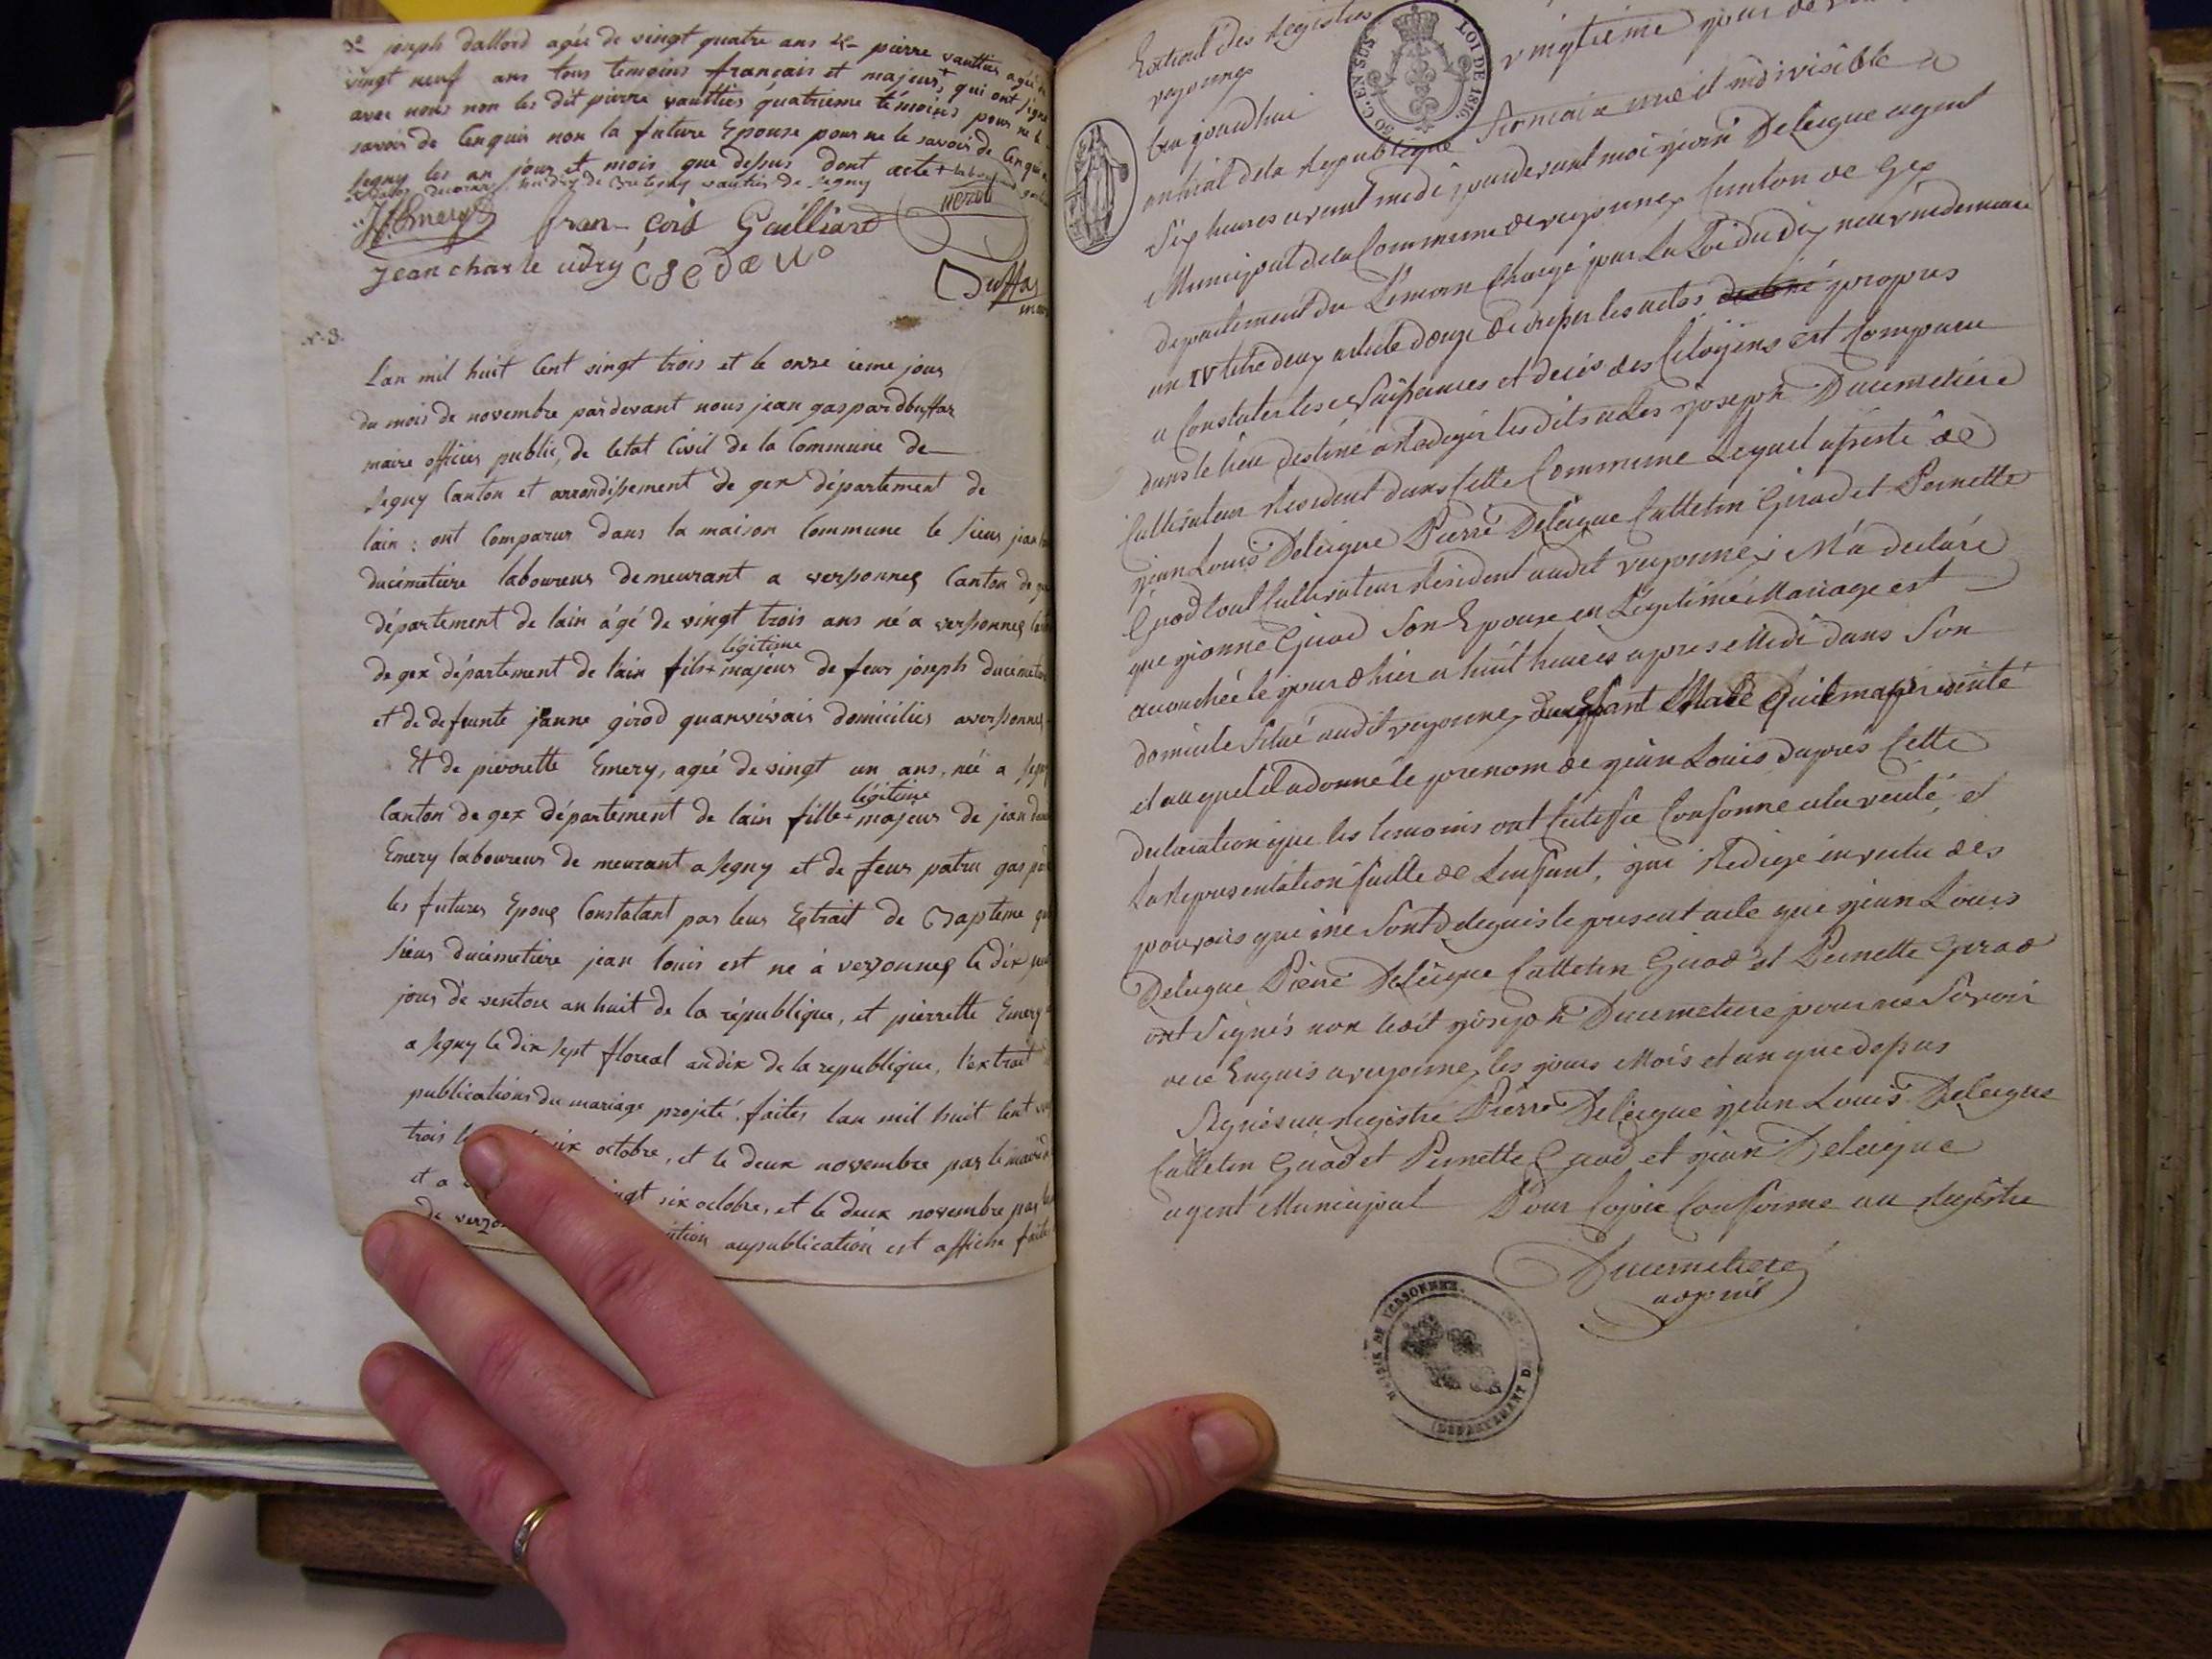 3o joseph dallod agée de vingt quatre ans 4o pierre vauttier agée de
vingt neuf ans tous temoins français et majeurs + qui ont signe
avec nous non les dit pierre vauttier quatrieme témoins pour ne le
savoir de Lenquis non la future Epouse pour ne le savoir de Lenquis
Segny les an jour et mois que dessus dont acte +
de Segny
JJ Emery fran-çois Gailliard
Jean charle udry
Duffar
maire
N. 3.
L'an mil huit Cent vingt trois et le onze ieme jour
du mois de novembre pardevant nous jean gaspard duffar
maire officier public, de letat Civil de la Commune de
Segny Canton et arrondissement de gex département de
lain : ont Comparus dans la maison Commune le sieur jean
ducimetiere laboureur demeurant a versonnex Canton de
département de lain âgé de vingt trois ans né a versonnex
légitime
de gex département de l'ain fils + majeur de feur joseph
et de defeunte jeanne girod quanvivais domicilies aversonnex
Et de pierrette Emery, agée de vingt un ans, née a
légitime
Canton de gex département de lain fille + majeur de jean
Emery laboureur de meurant a Segny et de feur patru
les futures Epoux Constatant par leur Extrait de Bapteme
sieur ducimetiere jean louis est né à versonnex le dix
jour de ventose an huit de la république, et pierrette Emery
a Segny le dix sept floreal an dix de la republique, l'extrait
publications du mariage projeté, faites lan mil huit Cent
trois octobre, et le deux novembre par le maire
et a six octobre, et le deux novembre par
de aupublication est affiche
Extrait des Registres
vingtieme jour de
30 C. EN SUS
LOI DE 1816.
aujourdhui
de la Republique francaise une et indivisible a
Six heures avant midi pardevant moi jean Deleigue agent
Municipal de la Commune de Canton de Gex
departement du Leman Chargé par La Loi du dix neuf vindemiaire
an IV titre deux article douze de dresser les actes propres
a Constater les Naissances et décès des Citoyens est Comparu
dans le lieu destiné a Rediger les dits actes joseph Ducimetiere
Cultivateur Residant dans Cette Commune Lequel assisté de
jean Louis Deleigue Pierre Deleigue Cattetin Girod et Pernette
Girod tout Cultivateur Resident audit M'a declaré
que Girod Son Epouse en Legitime Mariage est
acouchée le jour dhier a huit heures apres Midi dans Son
domicile Situé audit Male
et auquel il a donné le prenom de jean Louis Dapres Cette
declaration que les temoins ont Certifié Conforme a la verité, et
La Representation faitte de Lenfant, jai Redigé en vertu des
pouvoirs qui me Sont Delegués le present acte que jean Louis
Deleigue Pierre Deleigue Cattetin Girod et Pernette Girod
ont Signés non ledit joseph Ducimetiere pour ne Savoir
de ce Enquis les jours Mois et an que dessus
Signés au registre Pierre Deleigue jean Louis Deleigue
Cattetin Girod et Pernette Girod et jean Deleigue
agent Municipal Pour Copie Conforme au Registre
Ducimetiere
adjoint
MAIRIE DE VERSONNEX.
DÉPARTEMENT DE